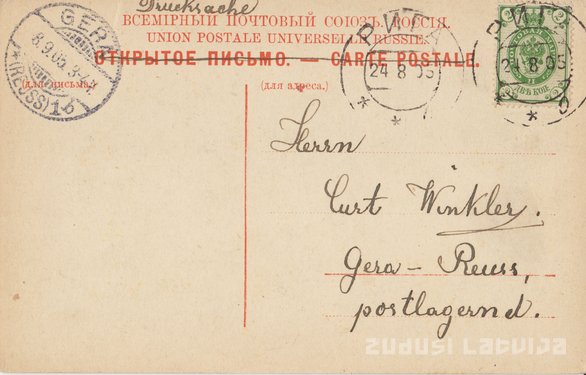 Drucksache
ВСЕМІРНЫЙ ПОЧТОВЫЙ СОЮЗЪ. РОССІЯ.
UNION POSTALE UNIVERSELLE. RUSSIE.
ОТКРЫТОЕ ПИСЬМО. — CARTE POSTALE.
(для письма.)
(для адреса.)
GERA
8.9.05.3-4
(REUSS) 1·b
РИГА
24 8 05
РИГА
24 8 05
ДВѢ КОП.
Herrn
Curt Winkler.
Gera-Reuss,
postlagernd.
ZUDUSI LATVIJA